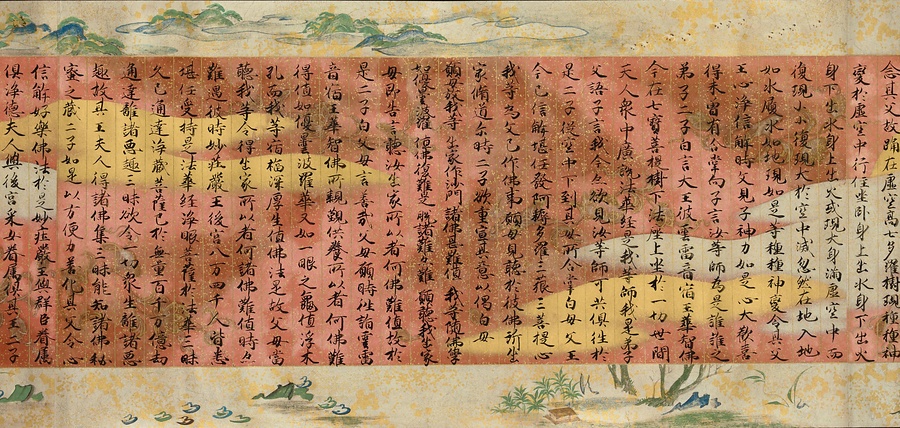 念其父故踊在虛空高七多羅樹現種種神
變於虛空中行住坐臥身上出水身下出火
身下出水身上出火或現大身滿虛空中而
復現小小復現大於空中滅忽然在地入地
如水履水如地現如是等種種神變令其父
王心淨信解時父見子神力如是心大歡喜
得未曾有合掌向子言汝等師為是誰誰之
弟子二子白言大王彼雲雷音宿王華智佛
今在七寶菩提樹下法座上坐於一切世間
天人眾中廣說法華經是我等師我是弟子
父語子言我今亦欲見汝等師可共俱往於
是二子從空中下到其母所合掌白母父王
今已信解堪任發阿耨多羅三藐三菩提心
我等為父已作佛事願母見聽於彼佛所出
家修道尒時二子欲重宣其意以偈白母
願母放我等 出家作沙門 諸佛甚難值 我等隨佛學
如優曇波羅 值佛復難是 脫諸難亦難 願聽我出家
母即告言聽汝出家所以者何佛難值故於
是二子白父母言善哉父母願時往詣雲雷
音宿王華智佛所親覲供養所以者何佛難
得值如優曇波羅華又如一眼之龜值浮木
孔而我等宿福深厚生值佛法是故父母當
聽我等令得出家所以者何諸佛難值時亦
難遇彼時妙莊嚴王後宮八万四千人皆悉
堪任受持是法華經淨眼菩薩於法華三昧
久已通達淨藏菩薩已於無量百千万億劫
通達離諸惡趣三昧欲令一切眾生離諸惡
趣故其王夫人得諸佛集三昧能知諸佛秘
密之藏二子如是以方便力善化其父令心
信解好樂佛法於是妙莊嚴王與群臣眷屬
俱淨德夫人與後宮采女眷屬俱其王二子